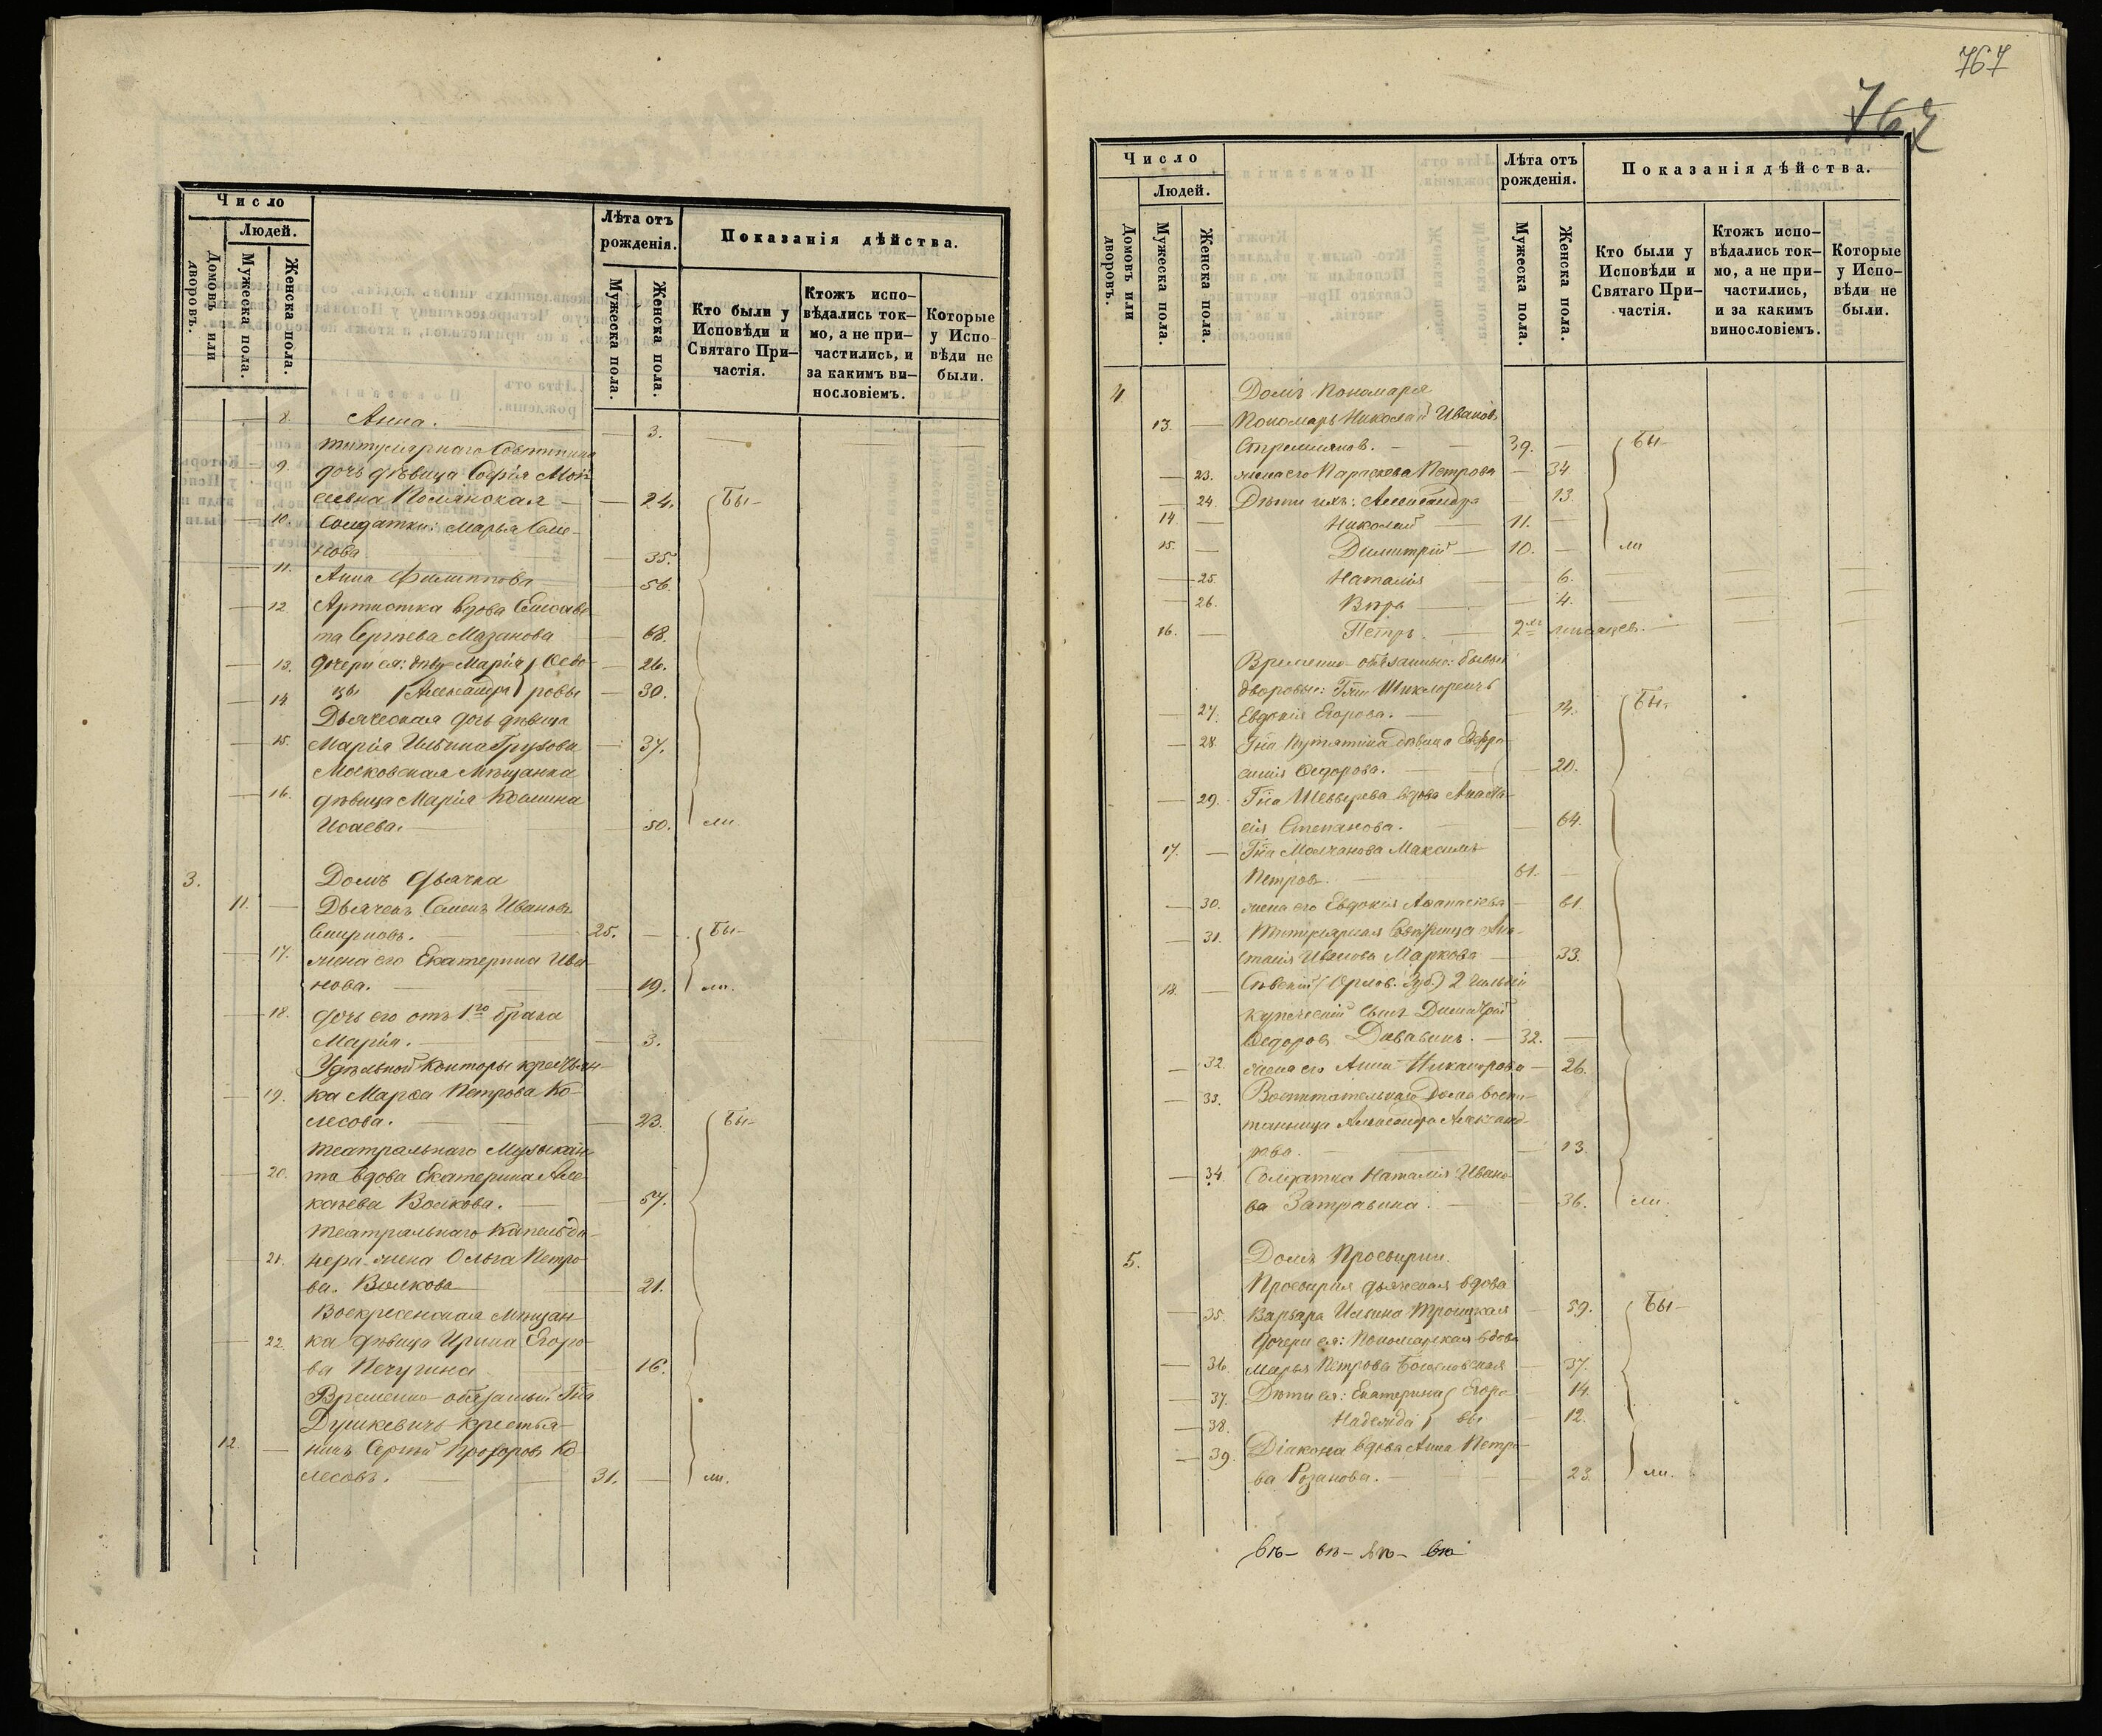 Число
Людей.
Домовъ или дворовъ.
Мужеска пола.
Женска пола.
Лѣта отъ рожденія.
Мужеска пола.
Женска пола.
Показанія дѣйства.
Кто были у Исповѣди и Святаго При-частія.
Ктожъ испо-вѣдались ток-мо, а не при-частились, и за какимъ ви-нословіемъ.
Которые у Испо-вѣди не были.
8. Анна. 3.
Титулярнаго Совѣтника
9. дочь дѣвица Софія Мои-
сеевна 24. Бы-
10. Солдатки: Марья Семе-
нова 35.
11. Анна Филиппова 56.
12 Артистка вдова Елисаве-
та Сергѣева Мазанова 68.
13. дочери ея: дѣви Марія Ѳедо- 26.
14 цы Александра ровы 30.
Дьяческая дочь дѣвица
15. Марія Ильина Грузова 37.
Московская Мѣщанка
16. дѣвица Марія Козмина
Исаева. 50. ли.
3. Домъ Дьячка
11. Дьячекъ Семенъ Ивановъ
Смирновъ. 25. Бы-
17. жена его Екатерина Ива-
нова. 19. ли.
18. дочь его отъ 1го брака
Марія. 3.
Удѣльной Конторы крестьян-
19. ка Марѳа Петрова Ко-
лесова. 23. Бы-
Театральнаго Музыкан-
20. та вдова Екатерина Але-
ксѣева Волкова. 57.
Театральнаго Капельди-
21. нера жена Ольга Петро-
ва Волкова 21.
Воскресенская Мѣщан-
22. ка дѣвица Ирина Егоро-
ва Печугина 16.
Временно-обязанный Гна
Душкевичъ крестья-
12. нинъ Сергѣй Прохоровъ Ко-
лесовъ. 31. ли.
767
Число
Людей.
Домовъ или дворовъ.
Мужеска пола.
Женска пола.
Лѣта отъ рожденія.
Мужеска пола.
Женска пола.
Показанія дѣйства.
Кто были у Исповѣди и Святаго При-частія.
Ктожъ испо-вѣдались ток-мо, а не при-частились, и за какимъ винословіемъ.
Которые у Испо-вѣди не были.
4 Домъ Пономаря
13. Пономарь Николай Ивановъ
39. Бы-
23. жена его Параскева Петрова 34.
24. Дѣти ихъ: Александра 13.
14. Николай 11.
15. Димитрій 10. ли
25. Наталія 6.
26. Вѣра 4.
16. Петръ. 2хъ мѣсяцев.
Временно-обязанные: бывшіе
дворовые: Гжи
27. Евдокія Егорова. 14. Бы-
28. Гна Путятина дѣвица Евфро-
синія Ѳедорова. 20.
29. Гна Шевырева вдова Анаста-
сія Степанова. 64.
17. Гна Молчанова Максимъ
Петровъ. 61.
30. жена его Евдокія Аѳанасіева 61.
31. Титулярная Совѣтница Ана-
стасія Иванова Маркова 33.
18. Сѣвскій (Орлов. Губ.) 2 гильдіи
купеческій сынъ Димитрій
Ѳедоровъ 32.
32. жена его Анна Никанорова 26.
33. Воспитательнаго Дома воспи-
танница Александра Александ-
рова. 13.
34. Солдатка Наталія Ивано-
ва Затравина. 36. ли.
5. Домъ Просвирни.
Просвирня дьяческая вдова
35. Варвара Ильина Троицкая 59. Бы-
дочери ея: Пономарская вдова
36. Марья Петрова Богословская 37.
37. Дѣти ея: Екатерина Егоро- 14.
38. Надежда вы 12.
39. Діакона вдова Анна Петро-
ва Розанова. 23. ли.